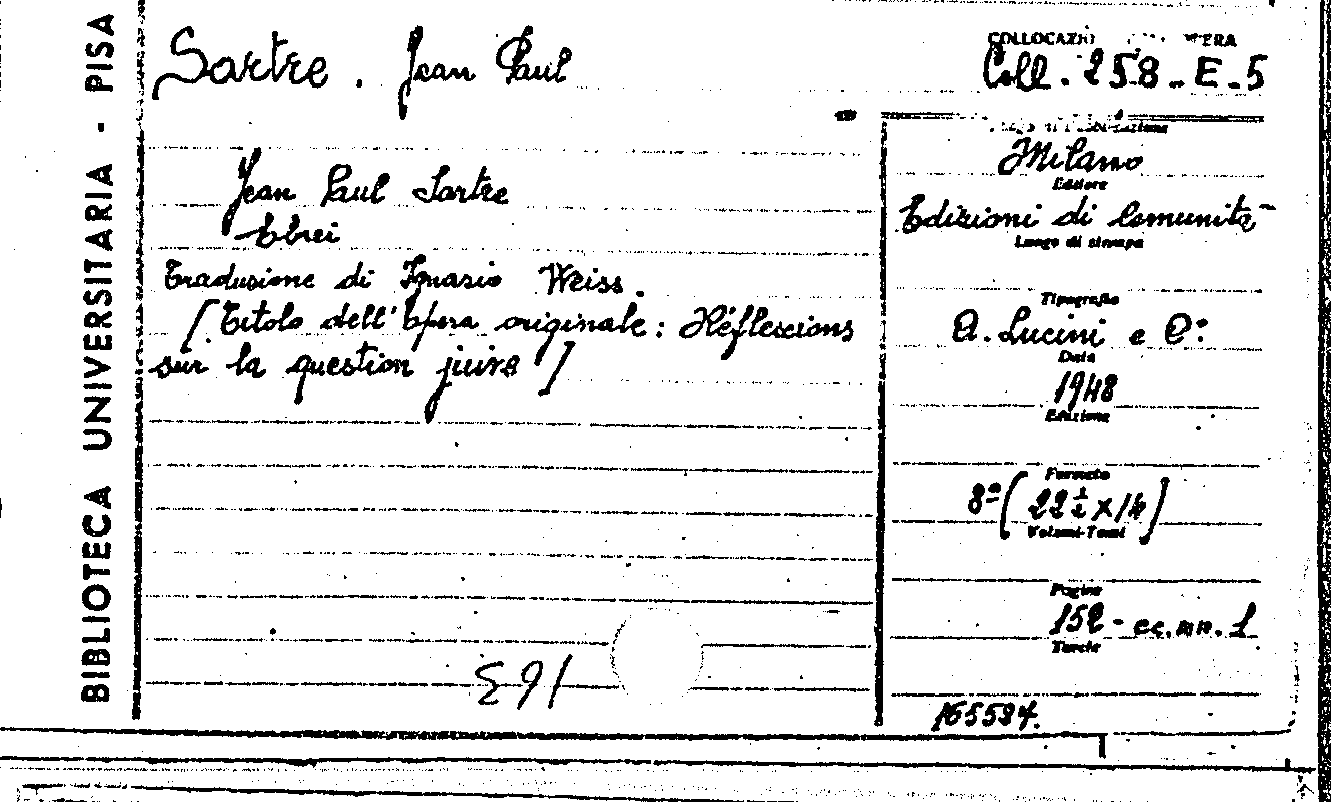 BIBLIOTECA UNIVERSITARIA - PISA
Sartre. Jean Paul
Jean Paul Sartre
Ebrei
Traduzione di Ignazio Weiss.
[Titolo dell'Opera originale: Réflexions
sur la question juive]
E 91
Coll. 258-E-5
Milano
Editore
Edizioni di Comunità
Luogo di stampa
Tipografia
A. Lucini e C°:
Data
1948
Edizione
Formato
8° (22 1/2 x 14)
Volumi-Tomi
Pagine
152 - cc. nn. 1
Tavole